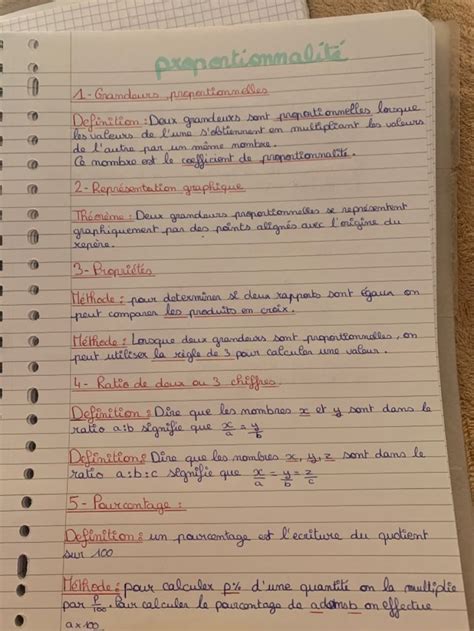 proportionnalité
1 - Grandeurs proportionnelles
Définition : Deux grandeurs sont proportionnelles lorsque
les valeurs de l'une s'obtiennent en multipliant les valeurs
de l'autre par un même nombre.
Ce nombre est le coefficient de proportionnalité.
2 - Représentation graphique
Théorème : Deux grandeurs proportionnelles se représentent
graphiquement par des points alignés avec l'origine du
repère.
3 - Propriétés
Méthode : pour determiner si deux rapports sont égaux on
peut comparer les produits en croix.
Méthode : Lorsque deux grandeurs sont proportionnelles, on
peut utiliser la règle de 3 pour calculer une valeur.
4 - Ratio de deux ou 3 chiffres
Definition : Dire que les nombres x et y sont dans le
ratio a:b signifie que x/a = y/b
Definition : Dire que les nombres x, y, z sont dans le
ratio a:b:c signifie que x/a = y/b = z/c
5 - Pourcentage :
Definition : un pourcentage est l'ecriture du quotient
sur 100
Méthode : pour calculer p% d'une quantité on la multiplie
par p/100. Pour calculer le pourcentage de a dans b on effectue
a x 100